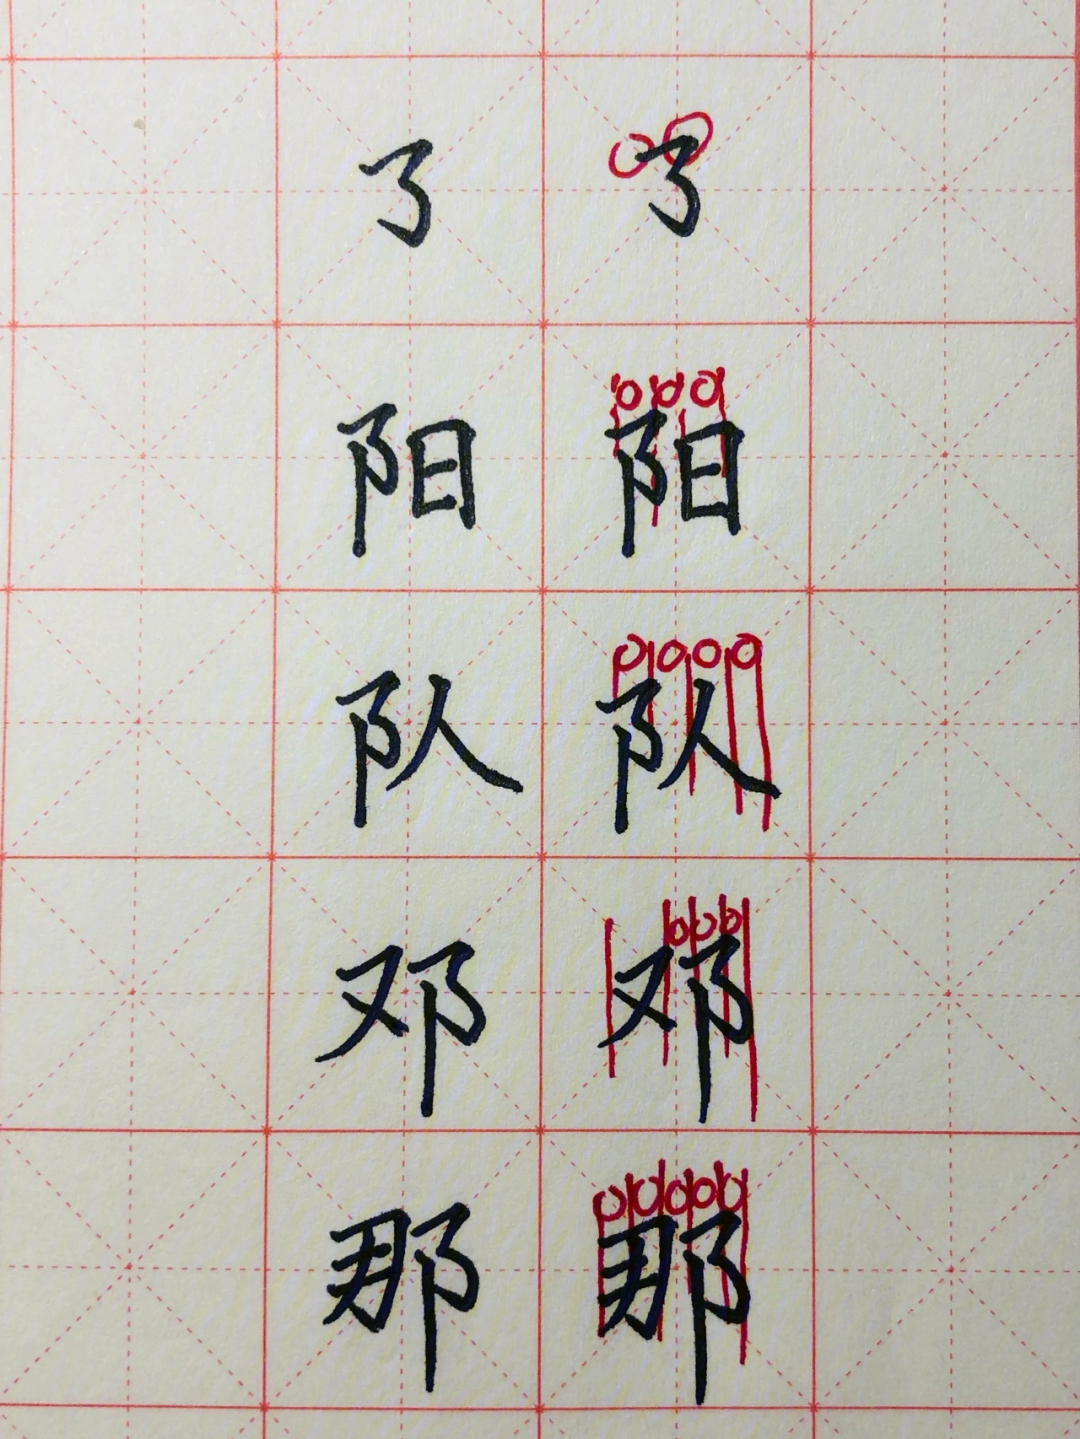 ㇌ ㇌
阳 阳
队 队
邓 邓
那 那